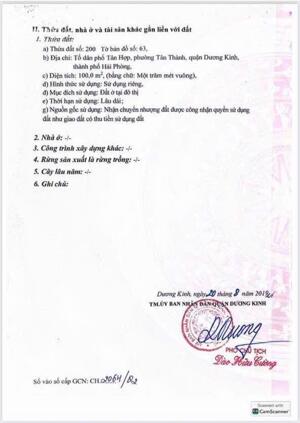 II. Thửa đất, nhà ở và tài sản khác gắn liền với đất
1. Thửa đất:
a) Thửa đất số: 200 Tờ bản đồ số: 63,
b) Địa chỉ: Tổ dân phố Tân Hợp, phường Tân Thành, quận Dương Kinh,
thành phố Hải Phòng,
c) Diện tích: 100,0 m², (bằng chữ: Một trăm mét vuông),
d) Hình thức sử dụng: Sử dụng riêng,
đ) Mục đích sử dụng: Đất ở tại đô thị
e) Thời hạn sử dụng: Lâu dài;
g) Nguồn gốc sử dụng: Nhận chuyển nhượng đất được công nhận quyền sử dụng
đất như giao đất có thu tiền sử dụng đất
2. Nhà ở: -/-
3. Công trình xây dựng khác: -/-
4. Rừng sản xuất là rừng trồng: -/-
5. Cây lâu năm: -/-
6. Ghi chú:
Dương Kinh, ngày 20 tháng 8 năm
TM.ỦY BAN NHÂN DÂN QUẬN DƯƠNG KINH
PHÓ CHỦ TỊCH
Đào Hữu Cường
Số vào sổ cấp GCN: CH.2064/
Scanned with
CamScanner